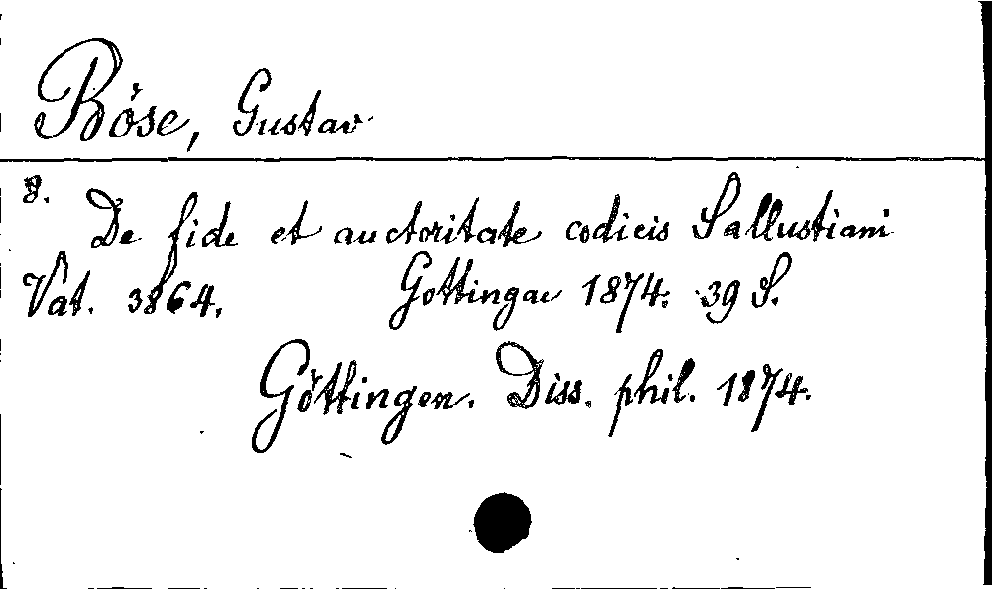 Böse, Gustav
8.
De fide et auctoritate codicis Sallustiani
Vat. 3864. Gottingae 1874. 39 S.
Göttingen. Diss. phil. 1874.